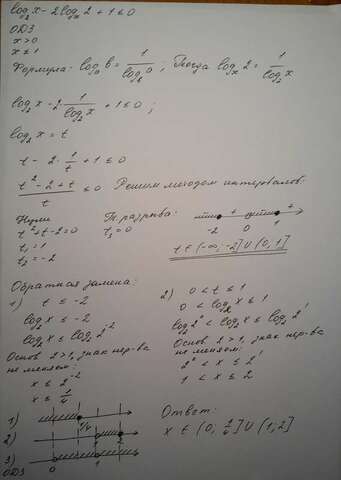 log₂x - 2log_x 2 + 1 ≤ 0
ОДЗ
x > 0
x ≠ 1
Формула: log_a b = 1/log_b a ; Тогда log_x 2 = 1/log₂x
log₂x - 2·1/log₂x + 1 ≤ 0 ;
log₂x = t
t - 2·1/t + 1 ≤ 0
(t² - 2 + t)/t ≤ 0 Решим методом интервалов:
Нули Т. разрыва:
t² + t - 2 = 0 t₃ = 0
t₁ = 1
t₂ = -2
- + - +
-2 0 1
t ∈ (-∞, -2] ∪ (0, 1]
Обратная замена:
1) t ≤ -2
log₂x ≤ -2
log₂x ≤ log₂2⁻²
Основ 2>1, знак нер-ва
не меняем:
x ≤ 2⁻²
x ≤ 1/4
2) 0 < t ≤ 1
0 < log₂x ≤ 1
log₂2⁰ < log₂x ≤ log₂2¹
Основ 2>1, знак нер-ва
не меняем:
2⁰ < x ≤ 2¹
1 < x ≤ 2
1) 1/4
2) 1 2
3) 0 1
ОДЗ
Ответ:
x ∈ (0, 1/4] ∪ (1; 2]